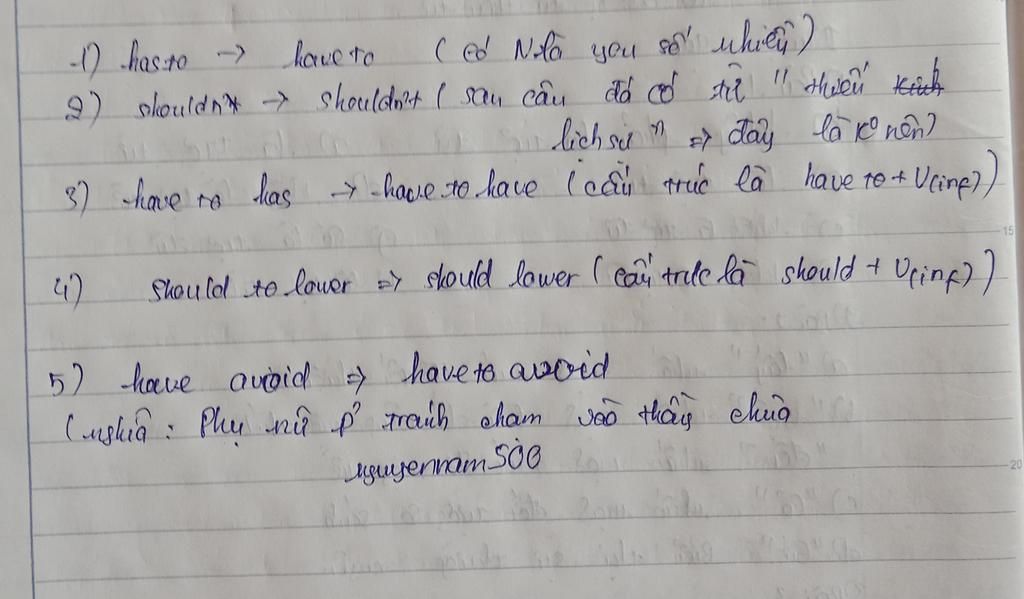 1) has to → have to ( có N là you số nhiều )
2) shouldn't → shouldn't ( sau câu đó có từ " thiếu
lịch sự " ⇒ đây là k° nên )
3) have to has → have to have ( cấu trúc là have to + V(inf) )
4) should to lower ⇒ should lower ( cấu trúc là should + V(inf) )
5) have avoid ⇒ have to avoid
( nghĩa : Phụ nữ p² tránh chạm vào thầy chùa
nguyennam500
15
20